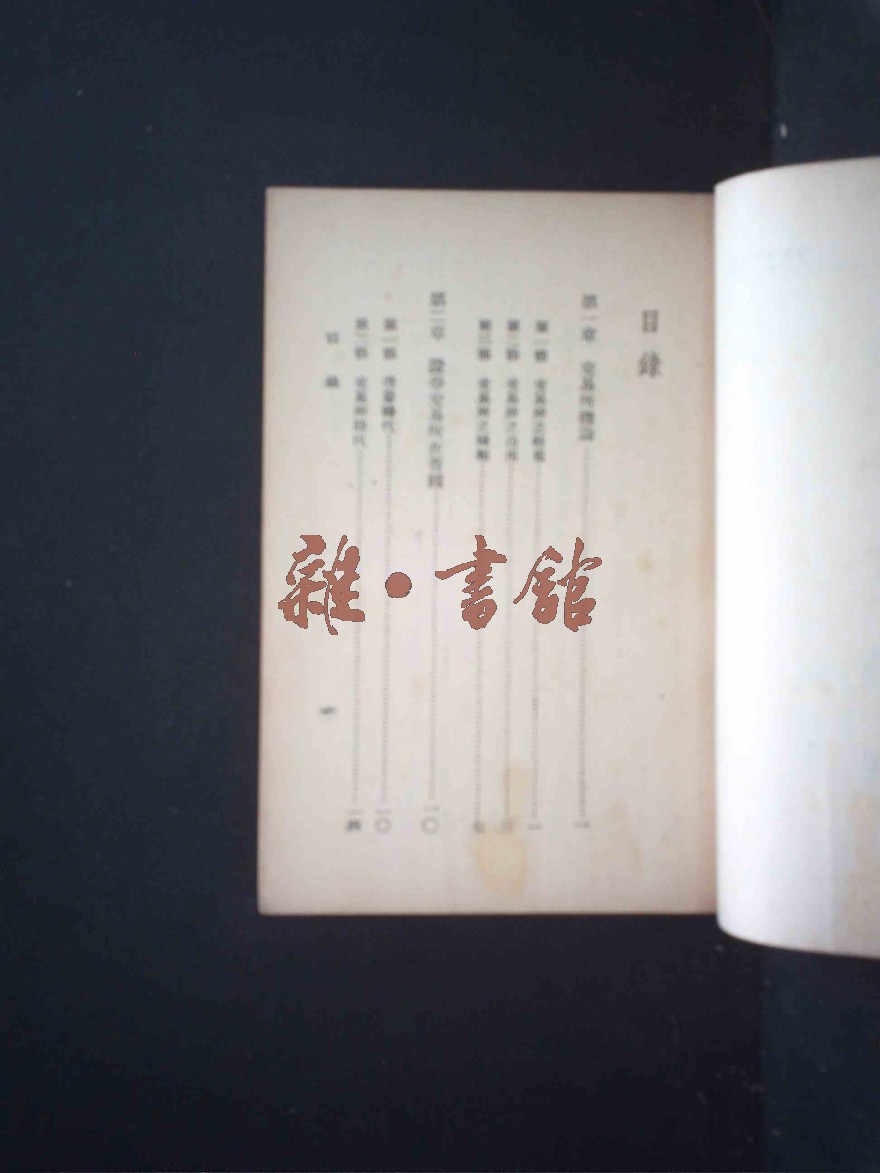 目錄
第一章 交易所概論……一
第一節 交易所之……一
第二節 交易所之……三
第三節 交易所之……七
第二章 證券交易所在我國……一〇
第一節 啓蒙時代……一〇
第二節 交易所時代……一四
目錄
一
雜·書館